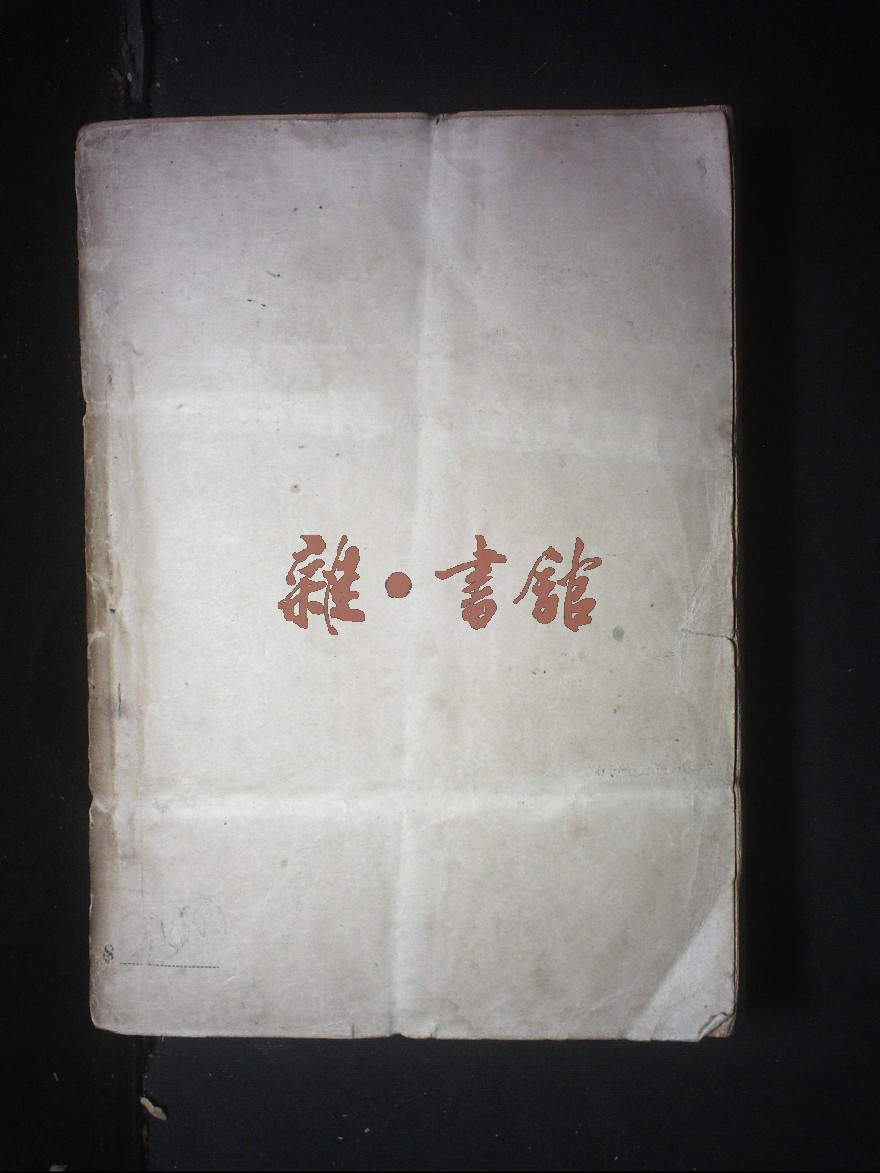 雜·書館
$